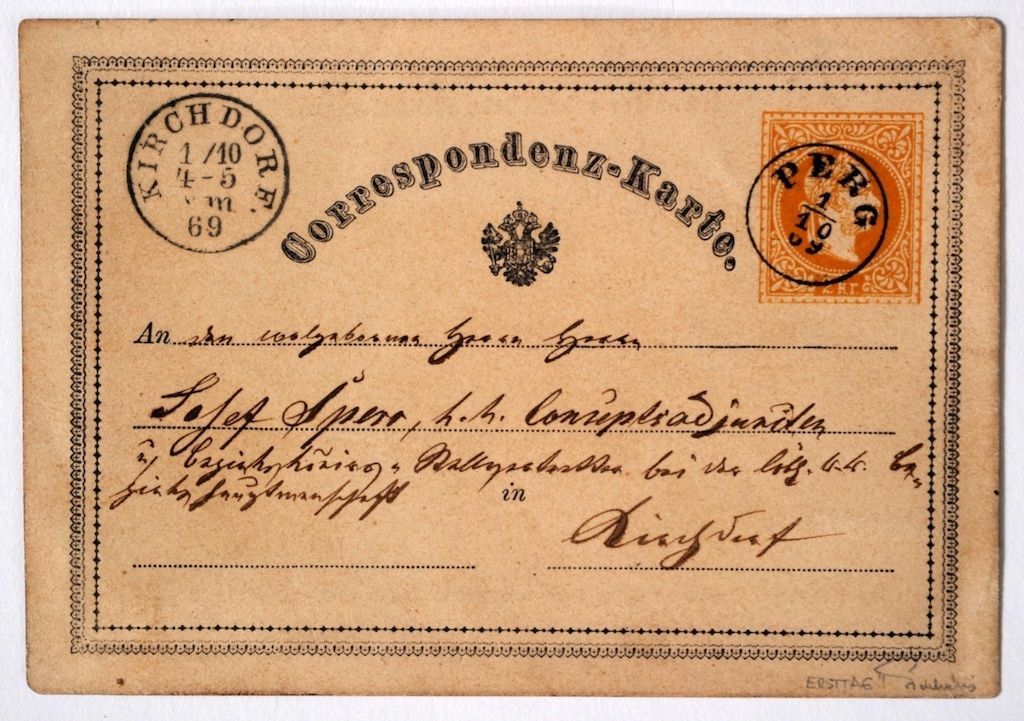 KIRCHDORF.
1/10
4-5
69
Correspondenz-Karte.
PERG
1
10
69
2 Kr
An den wolgebornen Herrn Herrn
Josef Spero, k. k. Conceptsadjuncten
u. Bezirks Stellvertreter bei der löbl. k. k. Be-
zirkshauptmannschaft in
Kirchdorf
ERSTTAG